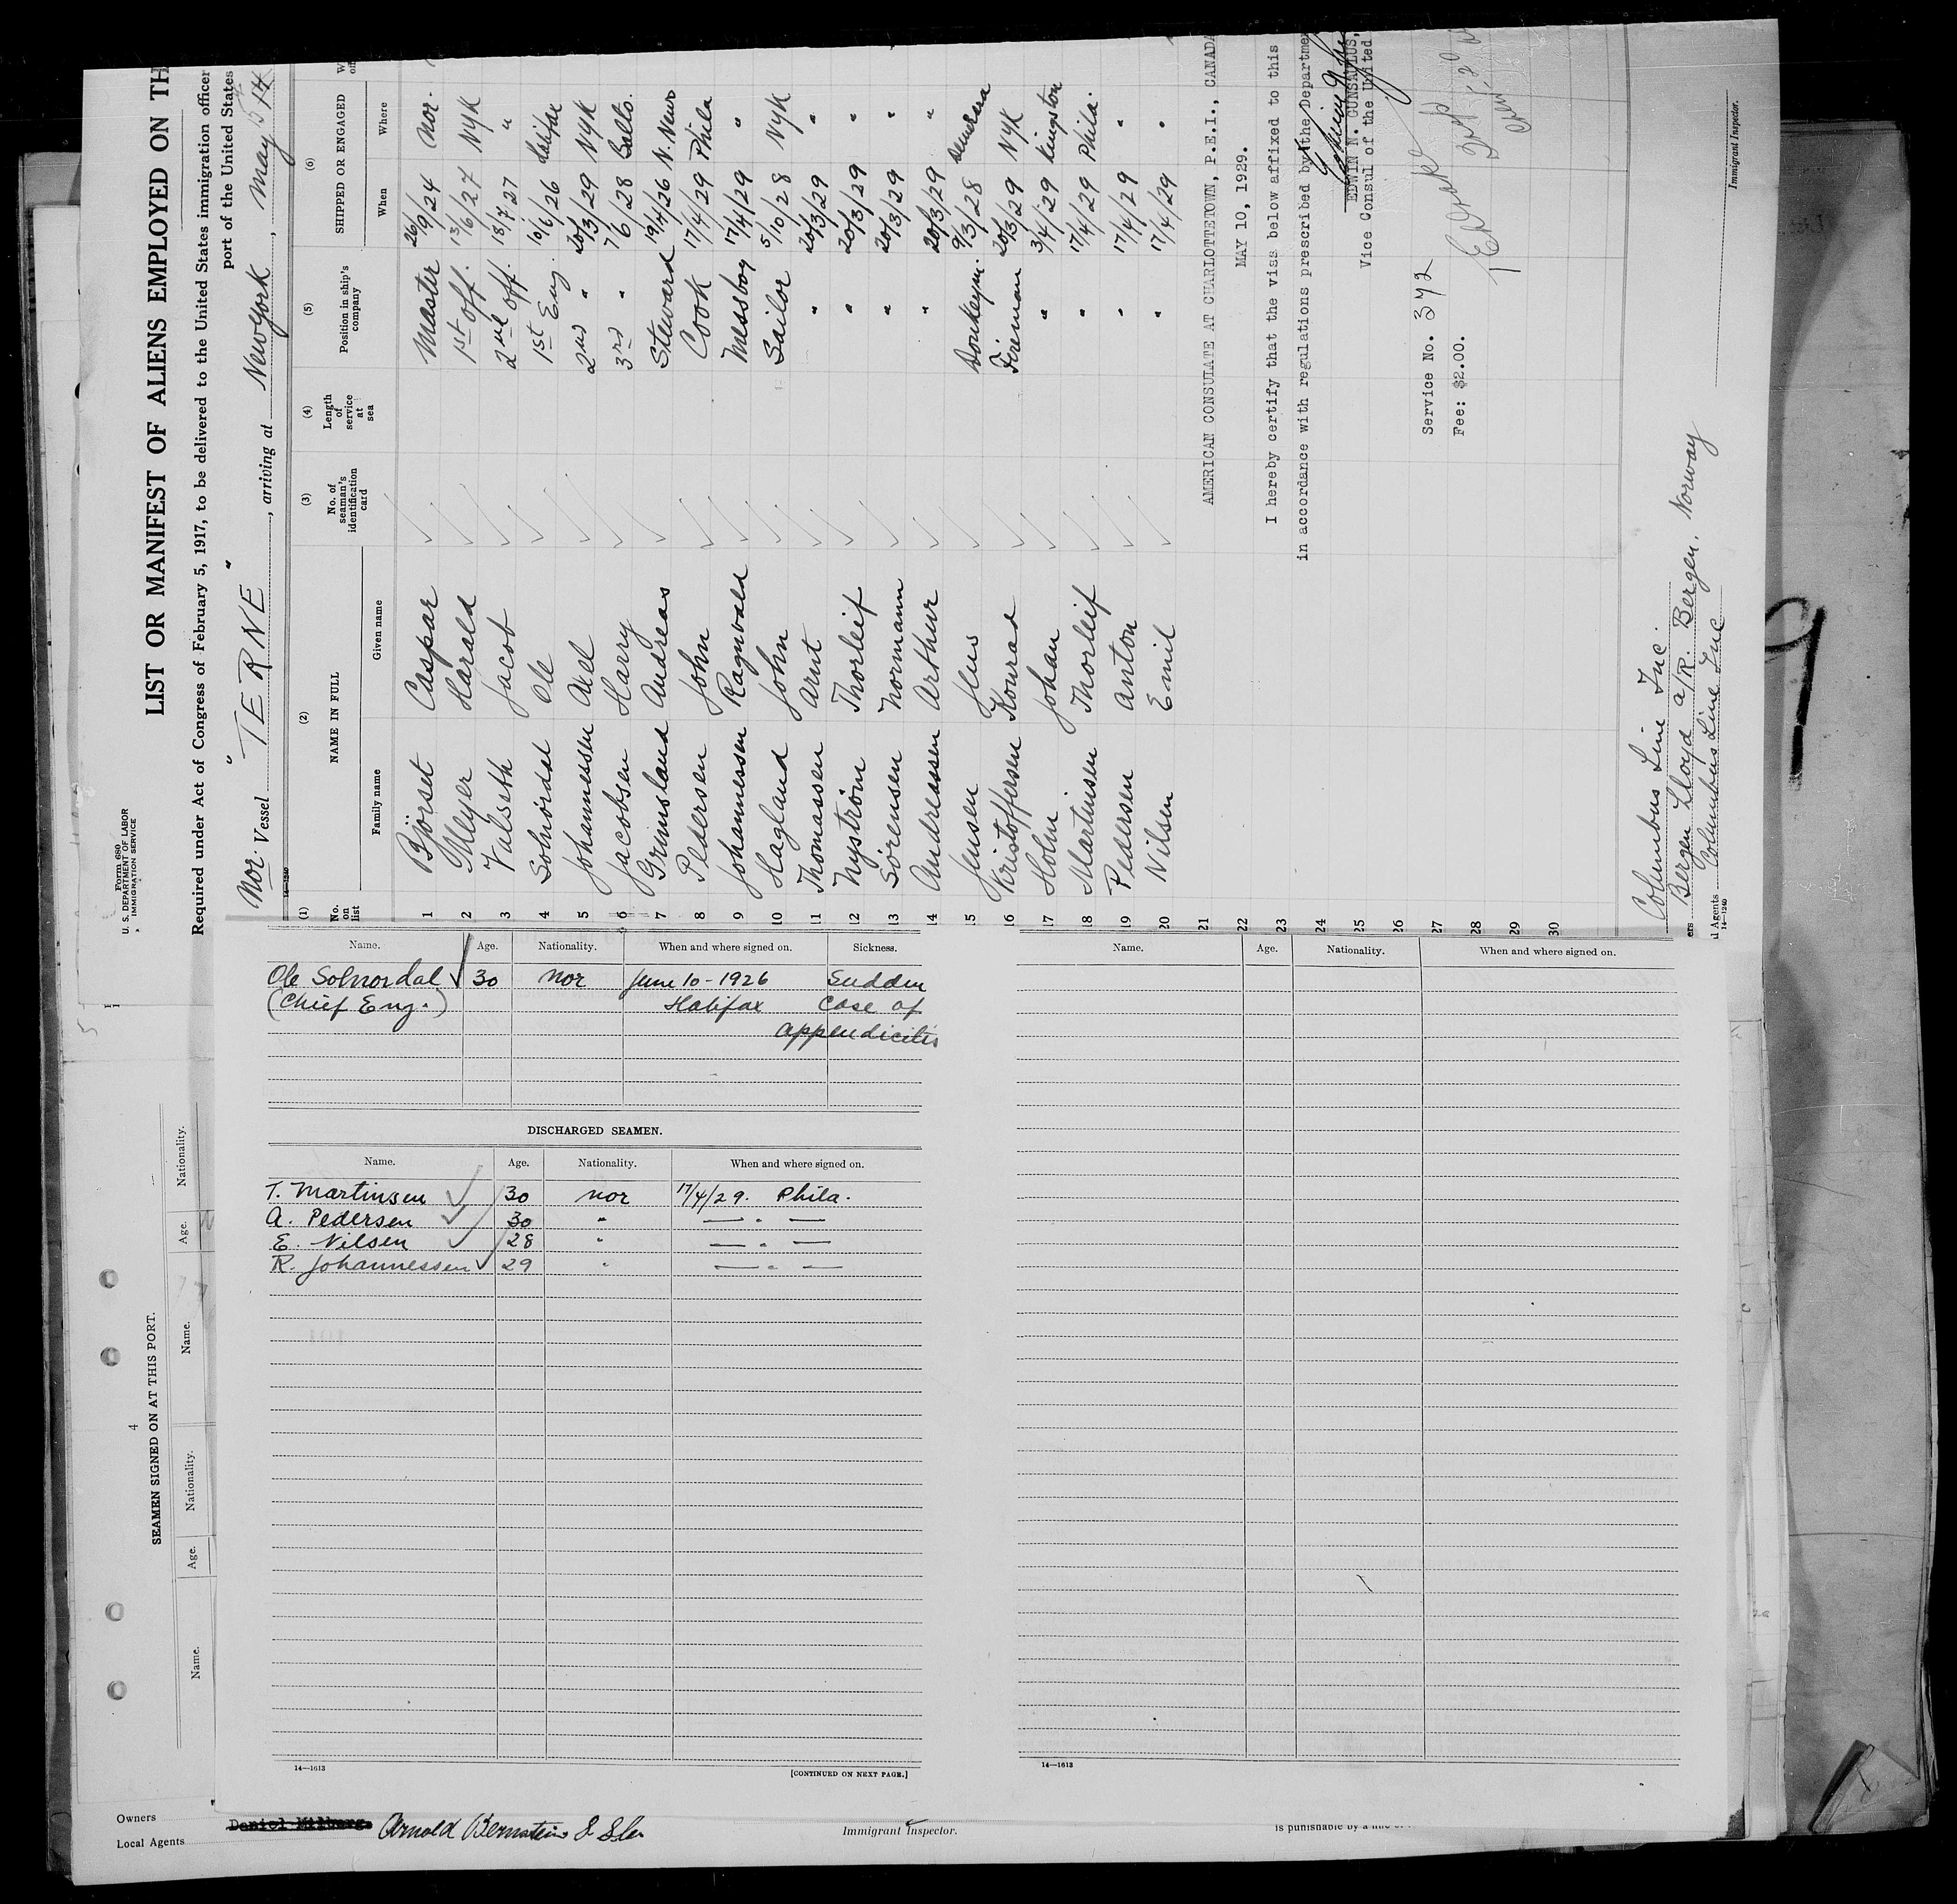 Form 680
U. S. DEPARTMENT OF LABOR
IMMIGRATION SERVICE
LIST OR MANIFEST OF ALIENS EMPLOYED ON TH
Required under Act of Congress of February 5, 1917, to be delivered to the United States immigration officer
port of the United States
Nor. Vessel "TERNE", arriving at New York, May
14—1240
(1) (2) (3) (4) (5) (6)
No. on list NAME IN FULL No. of seaman's identification card Length of service at sea Position in ship's company SHIPPED OR ENGAGED
Family name Given name When Where
1 Björset Caspar Master 26/9/24 Nor.
2 Meyer Harald 1st off. 13/6/27 NYK
3 Valseth Jacob 2nd off. 18/7/27 "
4 Solnördal Ole 1st Eng. 10/6/26 Halifax
5 Johannessen Axel 2nd " 20/3/29 NYK
6 Jacobsen Harry 3rd " 7/6/28 Balto.
7 Grimsland Andreas Steward 19/4/26 N. News
8 Pedersen John Cook 17/4/29 Phila
9 Johannessen Ragnvald Messboy 17/4/29 "
10 Hagland John Sailor 5/10/28 NYK
11 Thomassen Arnt " 20/3/29 "
12 Nyström Thorleif " 20/3/29 "
13 Sörensen Normann " 20/3/29 "
14 Andreassen Arthur " 20/3/29 "
15 Jensen Jens Donkeym. 9/3/28 Demerara
16 Kristoffersen Konrad Fireman 20/3/29 NYK
17 Holm Johan " 3/4/29 Kingston
18 Martinsen Thorleif " 17/4/29 Phila.
19 Pedersen Anton " 17/4/29 "
20 Nilsen Emil " 17/4/29 "
21
22
23
24
25
26
27
28
29
30
AMERICAN CONSULATE AT CHARLOTTETOWN, P.E.I., CANADA
MAY 10, 1929.
I hereby certify that the visa below affixed to this
in accordance with regulations prescribed by the Departmen
EDWIN N. GUNSAULUS,
Vice Consul of the United
Service No. 372
Fee: $2.00.
Columbus Line Inc.
ers Bergen Lloyd a/R. Bergen, Norway
l Agents Columbus Line Inc
14—1240
Immigrant Inspector.
Name. Age. Nationality. When and where signed on. Sickness.
Ole Solnordal 30 Nor June 10-1926 Sudden
(Chief Eng.) Halifax case of
appendicitis
DISCHARGED SEAMEN.
Name. Age. Nationality. When and where signed on.
T. Martinsen 30 Nor 17/4/29. Phila.
A. Pedersen 30 " — " —
E. Nilsen 28 " — " —
R. Johannessen 29 " — " —
14—1613
[CONTINUED ON NEXT PAGE.]
Name. Age. Nationality. When and where signed on.
14—1613
4
SEAMEN SIGNED ON AT THIS PORT.
Name. Age. Nationality. Name. Age. Nationality.
Owners
Local Agents Daniel Milberg Arnold Bernstein
Immigrant Inspector.
is punishable by a